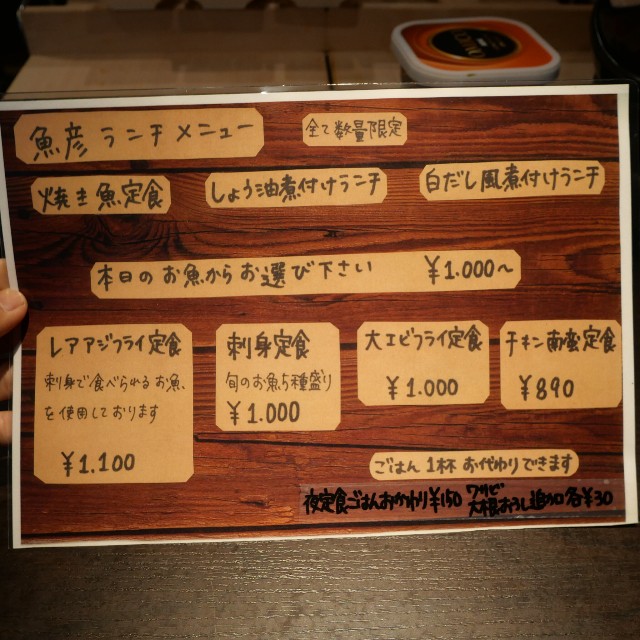 魚彦 ランチ メニュー
全て数量限定
焼き魚定食
しょう油煮付けランチ
白だし風煮付けランチ
本日のお魚からお選び下さい ¥1.000〜
レアアジフライ定食
刺身で食べられるお魚、
を使用しております
¥1.100
刺身定食
旬のお魚5種盛り
¥1.000
大エビフライ定食
¥1.000
チキン南蛮定食
¥890
ごはん 1杯 お代わりできます
夜定食ごはんおかわり¥150
ワサビ
大根おろし追加各¥30